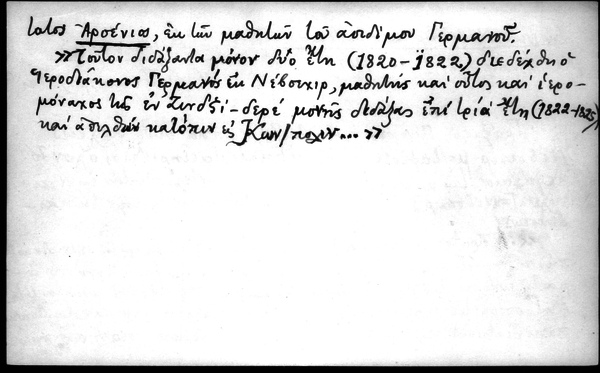 τατος Ἀρσένιος, ἐκ τῶν μαθητῶν τοῦ ἀοιδίμου Γερμανοῦ.
»Τοῦτον διδάξαντα μόνον δύο ἔτη (1820-1822) διεδέχθη ὁ
Ἱεροδιάκονος Γερμανός ἐκ Νέβσεχιρ, μαθητής καί οὗτος καί ἱερο-
μόναχος τῆς ἐν Ζινδζί-δερέ μονῆς διδάξας ἐπί τρία ἔτη (1822-1825)
καί ἀπελθών κατόπιν εἰς Κων/πολιν... »